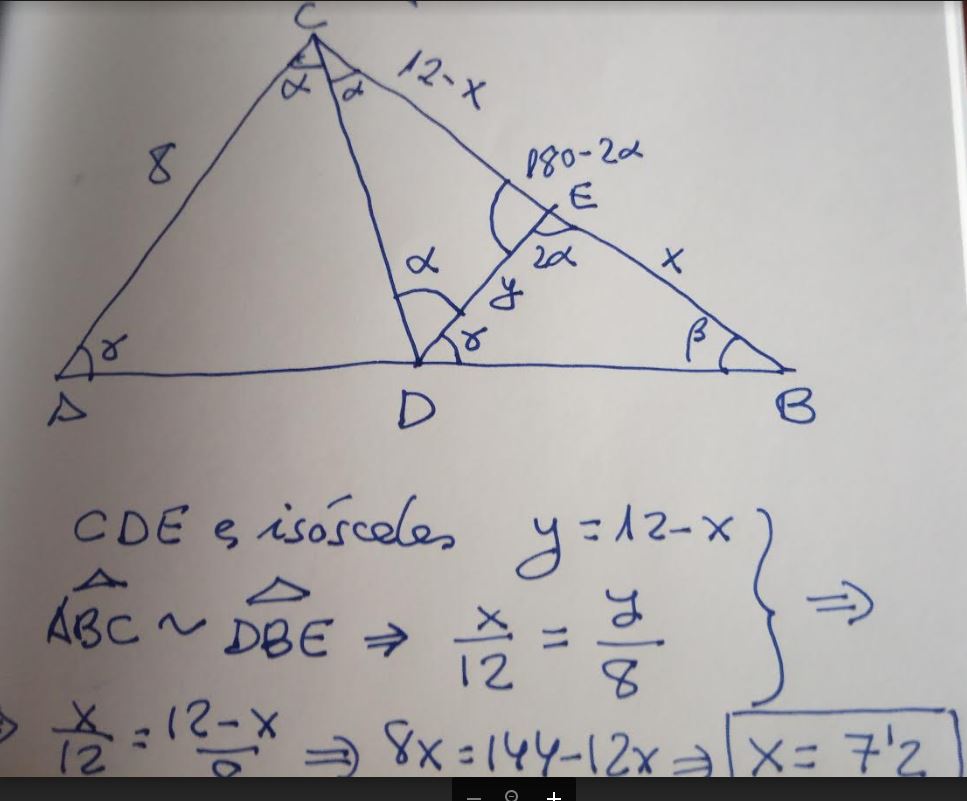 C
α α 12-x
8
180-2α
E
2α
α
y
x
γ
γ
β
A D B
CDE es isósceles y = 12-x
ABC ~ DBE ⇒ x/12 = y/8 } ⇒
⇒ x/12 = 12-x/8 ⇒ 8x = 144-12x ⇒ x = 7'2